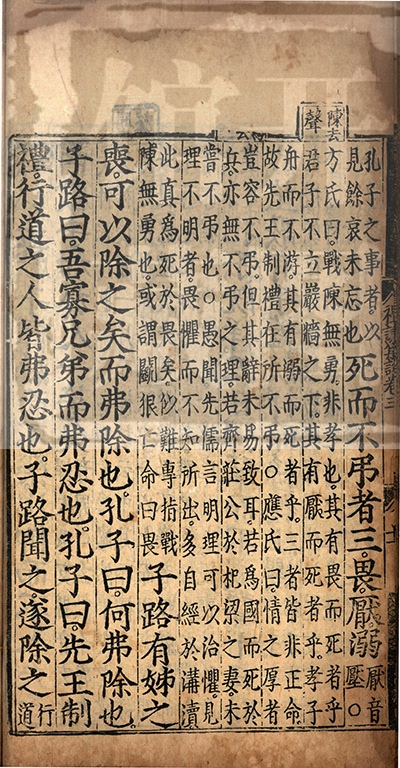 陳去
聲
孔子之事者以
見餘哀未忘也
死而不弔者三畏厭溺
厭音
壓○
方氏曰戰陳無勇非孝也其有畏而死者乎
君子不立巖牆之下其有厭而死者乎孝子
舟而不游其有溺而死者乎三者皆非正命
故先王制禮在所不弔○應氏曰情之厚者
豈容不弔但其辭未易致耳若為國而死於
兵亦無不弔之理若齊莊公於杞梁之妻未
嘗不弔也○愚聞先儒言明理可以治懼見
理不明者畏懼而不知所出多自經於溝瀆
此真為死於畏矣似難專指戰
陳無勇也或謂鬭狠亡命曰畏
子路有姊之
喪可以除之矣而弗除也孔子曰何弗除也
子路曰吾寡兄弟而弗忍也孔子曰先王制
禮行道之人皆弗忍也子路聞之遂除之
行
道